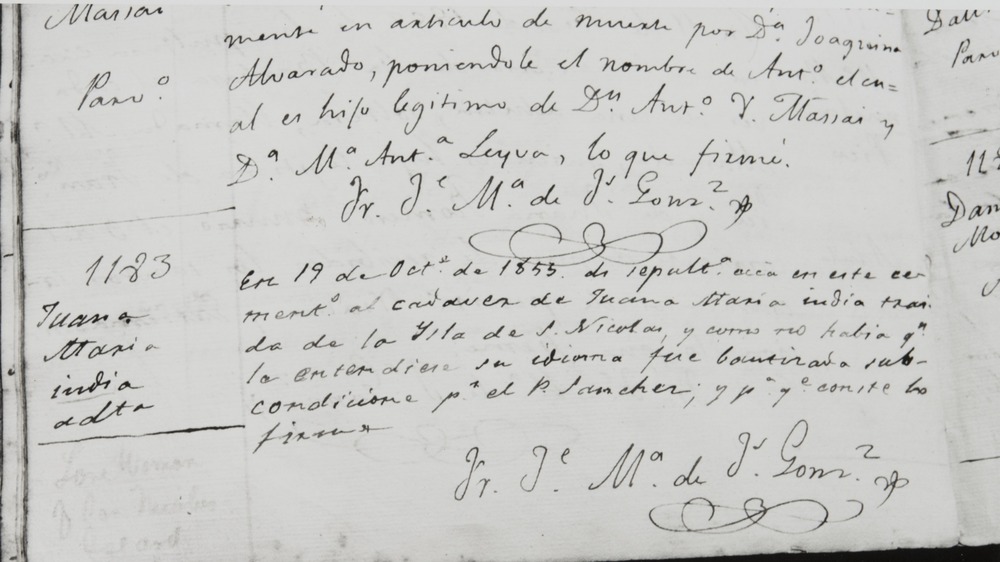 Massai
Parv.º
mente en articulo de muerte por D.ª Joaquina
Alvarado, poniendole el nombre de Ant.º el cu=
al es hijo legitimo de D.n Ant.º V. Massai y
D.ª M.ª Ant.ª Leyva, lo que firmé.
Fr. J.e M.ª de J.s Gonz.z
1183
Juana
Maria
india
adta
En 19 de Oct.e de 1853. di sepult.ª ecca en este ce-
ment.º al cadaver de Juana Maria india trai
da de la Ysla de S. Nicolas, y como no habia q.n
la entendiese su idioma fue bautizada sub-
condicione p.r el P. Sanchez; y p.a q.e conste lo
firme
Fr. J.e M.ª de J.s Gonz.z
Parv
Dam
Mo